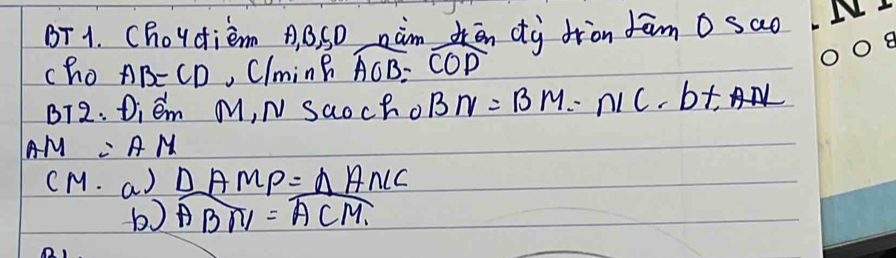 BT1. Cho 4 điểm A,B,C,D nằm trên đg tròn tâm O sao
cho AB=CD, C/minh AOB= COD
BT2. Điểm M,N sao cho BN = BM = NC. bt. AN
AM = AN
CM. a) Δ AMP = Δ ANC
b) ABN = ACM.